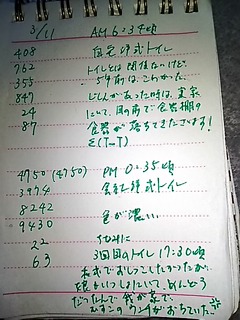 3/11 AM 6:34頃
408 自宅洋式トイレ
762 トイレとは関係ないけど、
355 3年前はこわかった。
847 じしんがあった時は、実家
24 にいて、目の前で食器棚の
87 食器が落ちてきたですます!
Σ(T-T)
4750 (4750) PM 0:35頃
3974 会社洋式トイレ
8242
9430 色が濃い
22 ちなみに
63 3回目のトイレ 17:30頃
でおしっこしたかったが、
いっしょにいて、めんどう
だったんで 我が家で、
ウンチがおちていた